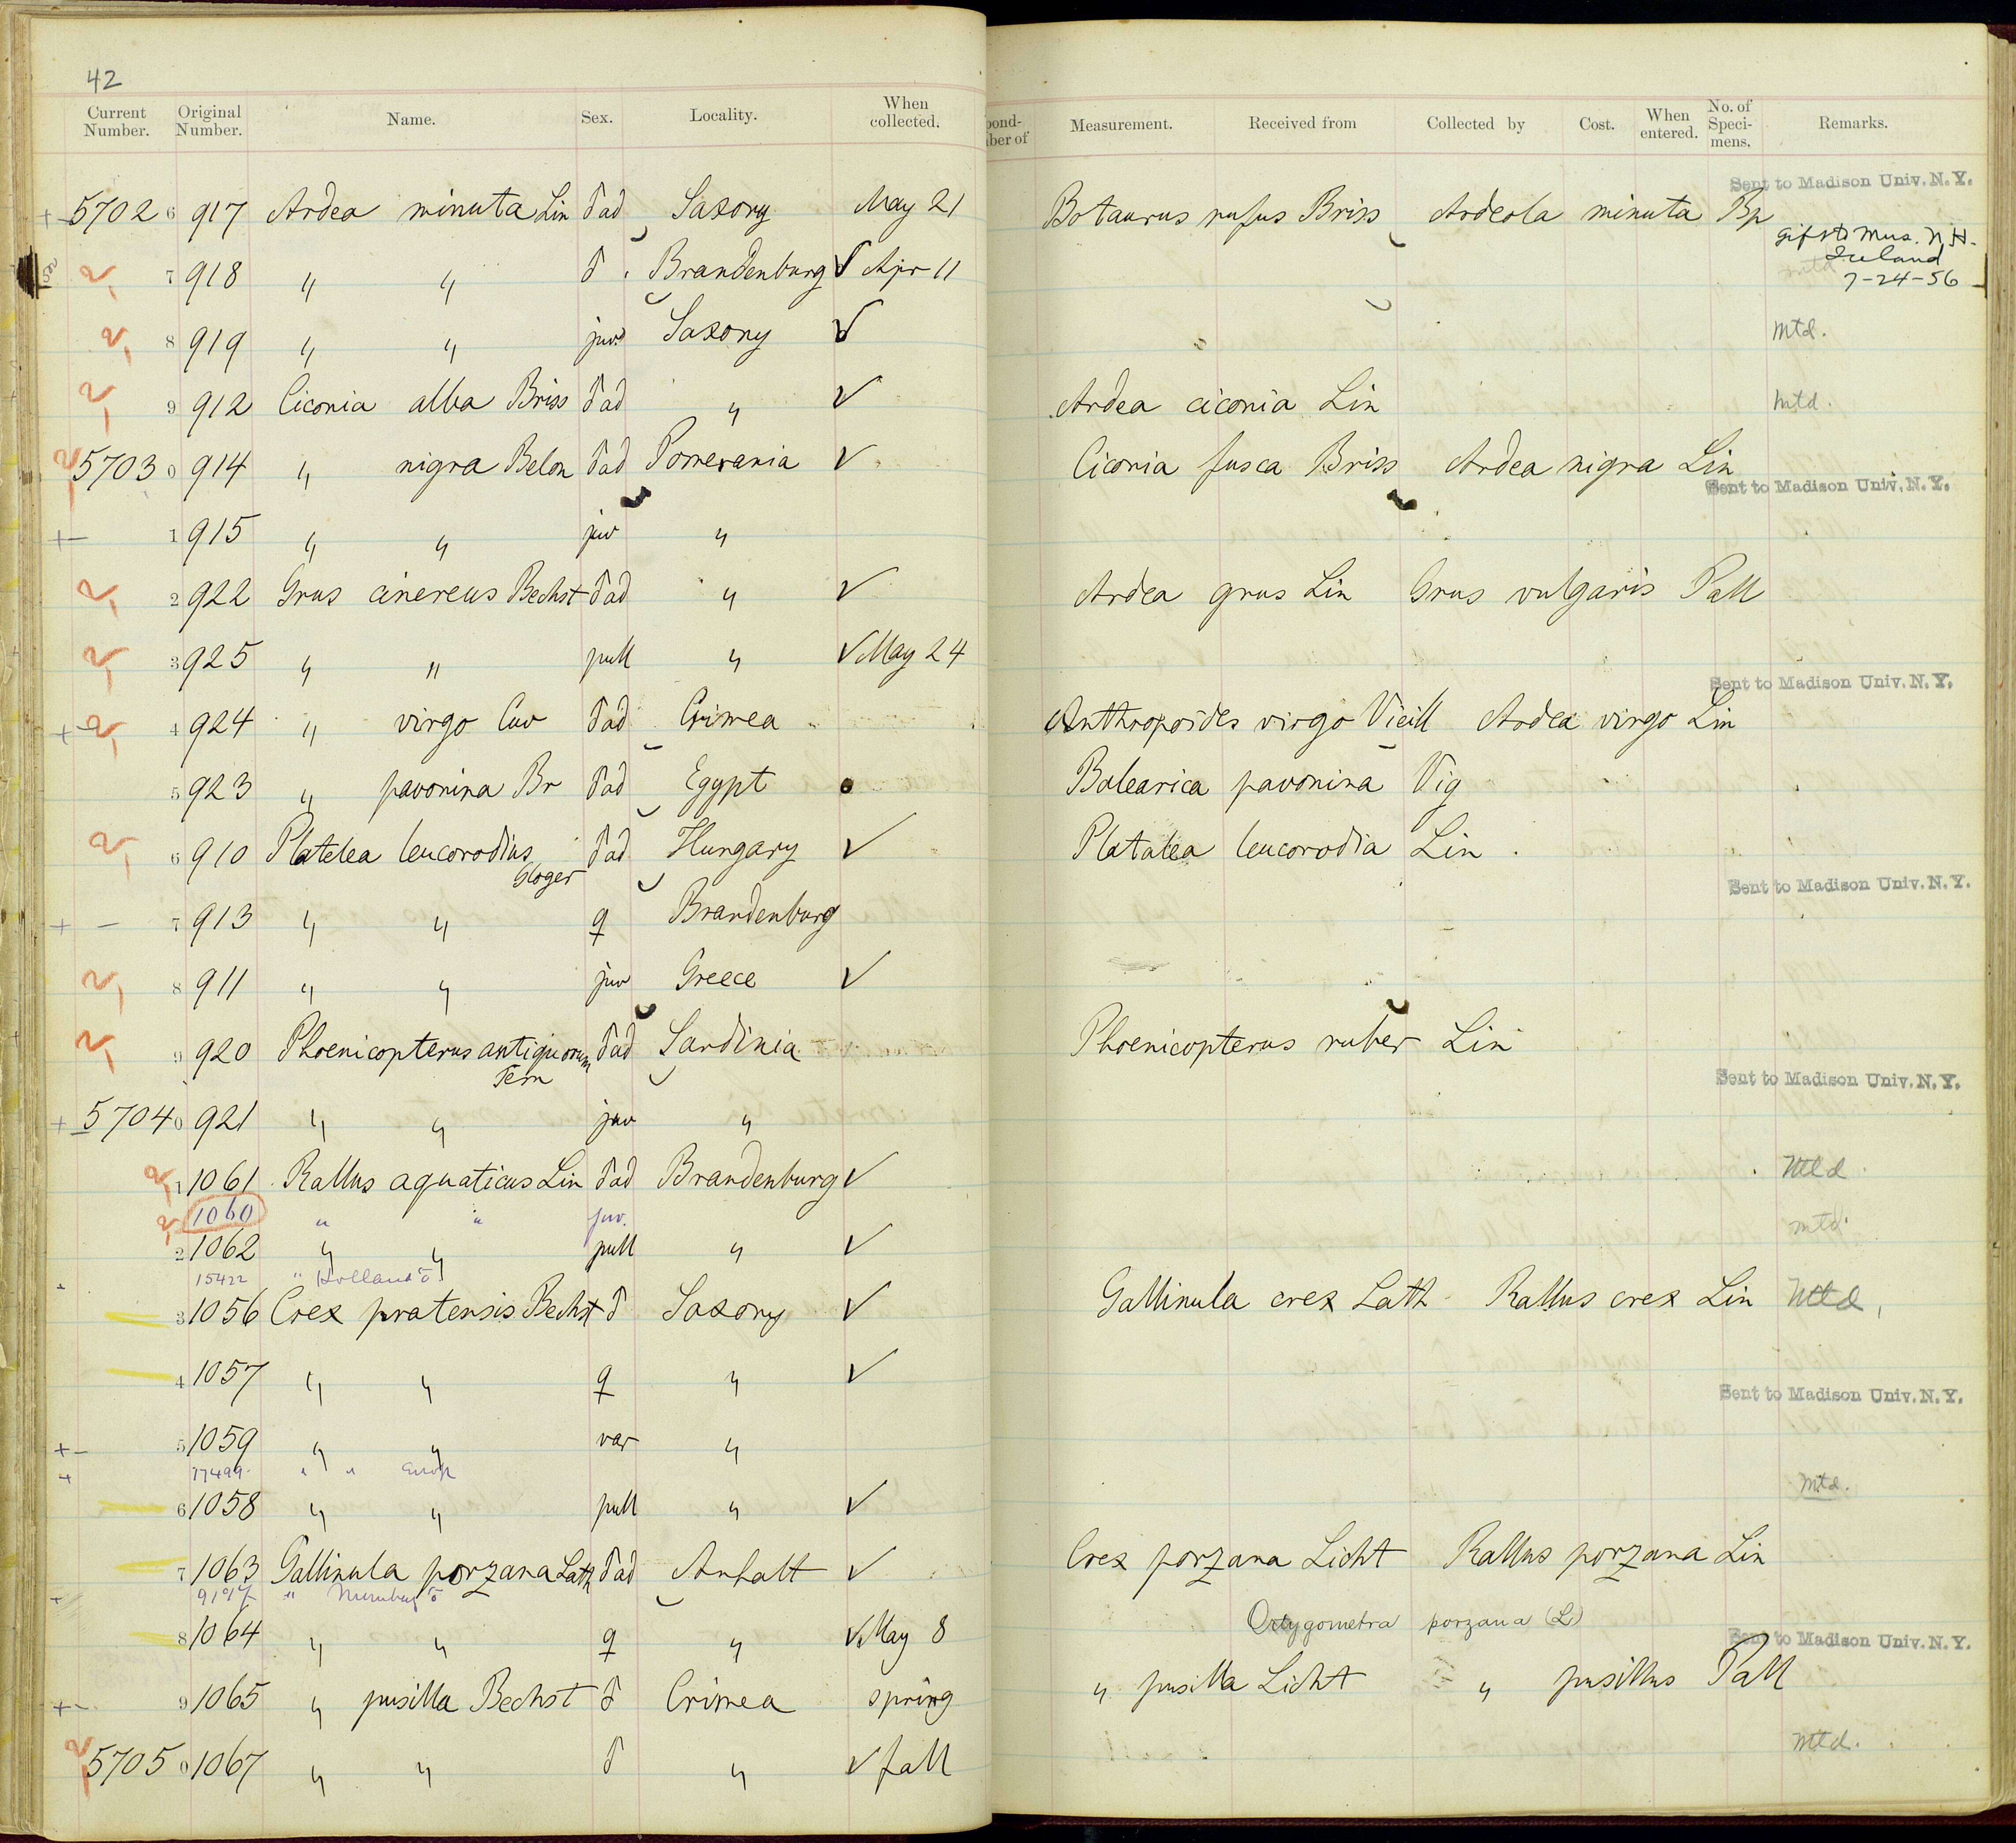 42
Current Number. Original Number. Name. Sex. Locality. When collected.
pond- ber of Measurement. Received from Collected by Cost. When entered. No. of Speci- mens. Remarks.
Sent to Madison Univ. N. Y.
5702 6 917 Ardea minuta Lin ♂ ad Saxony May 21 Botaurus rufus Briss Ardeola minuta Bp
gift to Mus. N. H.
Iceland
7-24-56
7 918 " " ♂ Brandenburg ✓ Apr 11
8 919 " " juv Saxony ✓ Mtd.
9 912 Ciconia alba Briss ♂ ad " ✓ Ardea ciconia Lin Mtd.
5703 0 914 " nigra Belon ♂ ad Pomerania ✓ Ciconia fusca Briss Ardea nigra Lin
Sent to Madison Univ. N. Y.
1 915 " " juv "
2 922 Grus cinereus Bechst ♂ ad " ✓ Ardea grus Lin Grus vulgaris Pall
3 925 " " pull " ✓ May 24
Sent to Madison Univ. N. Y.
4 924 " virgo Cuv ♂ ad Crimea Anthropoides virgo Vieill Ardea virgo Lin
5 923 " pavonina Br ♂ ad Egypt Balearica pavonina Vig
6 910 Platelea leucorodius Gloger ♂ ad Hungary ✓ Platalea leucorodia Lin
Sent to Madison Univ. N. Y.
7 913 " " ♀ Brandenburg
8 911 " " juv Greece ✓
9 920 Phoenicopterus antiquorum Tem ♂ ad Sardinia Phoenicopterus ruber Lin
Sent to Madison Univ. N. Y.
5704 0 921 " " juv "
1 1061 Rallus aquaticus Lin ♂ ad Brandenburg ✓ Mtd
1060 " " juv.
2 1062 " " pull " ✓ mtd.
15422 " Holland ♂
3 1056 Crex pratensis Bechst ♂ Saxony ✓ Gallinula crex Lath Rallus crex Lin Mtd.
4 1057 " " ♀ " ✓
Sent to Madison Univ. N. Y.
5 1059 " " var "
17499 " " Europ
6 1058 " " pull " ✓ Mtd.
7 1063 Gallinula porzana Lath ♂ ad Anhalt ✓ Crex porzana Licht Rallus porzana Lin
" ♂
Ortygometra porzana (L)
8 1064 " " ♀ " ✓ May 8
Sent to Madison Univ. N. Y.
9 1065 " pusilla Bechst ♂ Crimea spring " pusilla Licht " pusillus Pall
5705 0 1067 " " ♂ " ✓ fall Mtd.